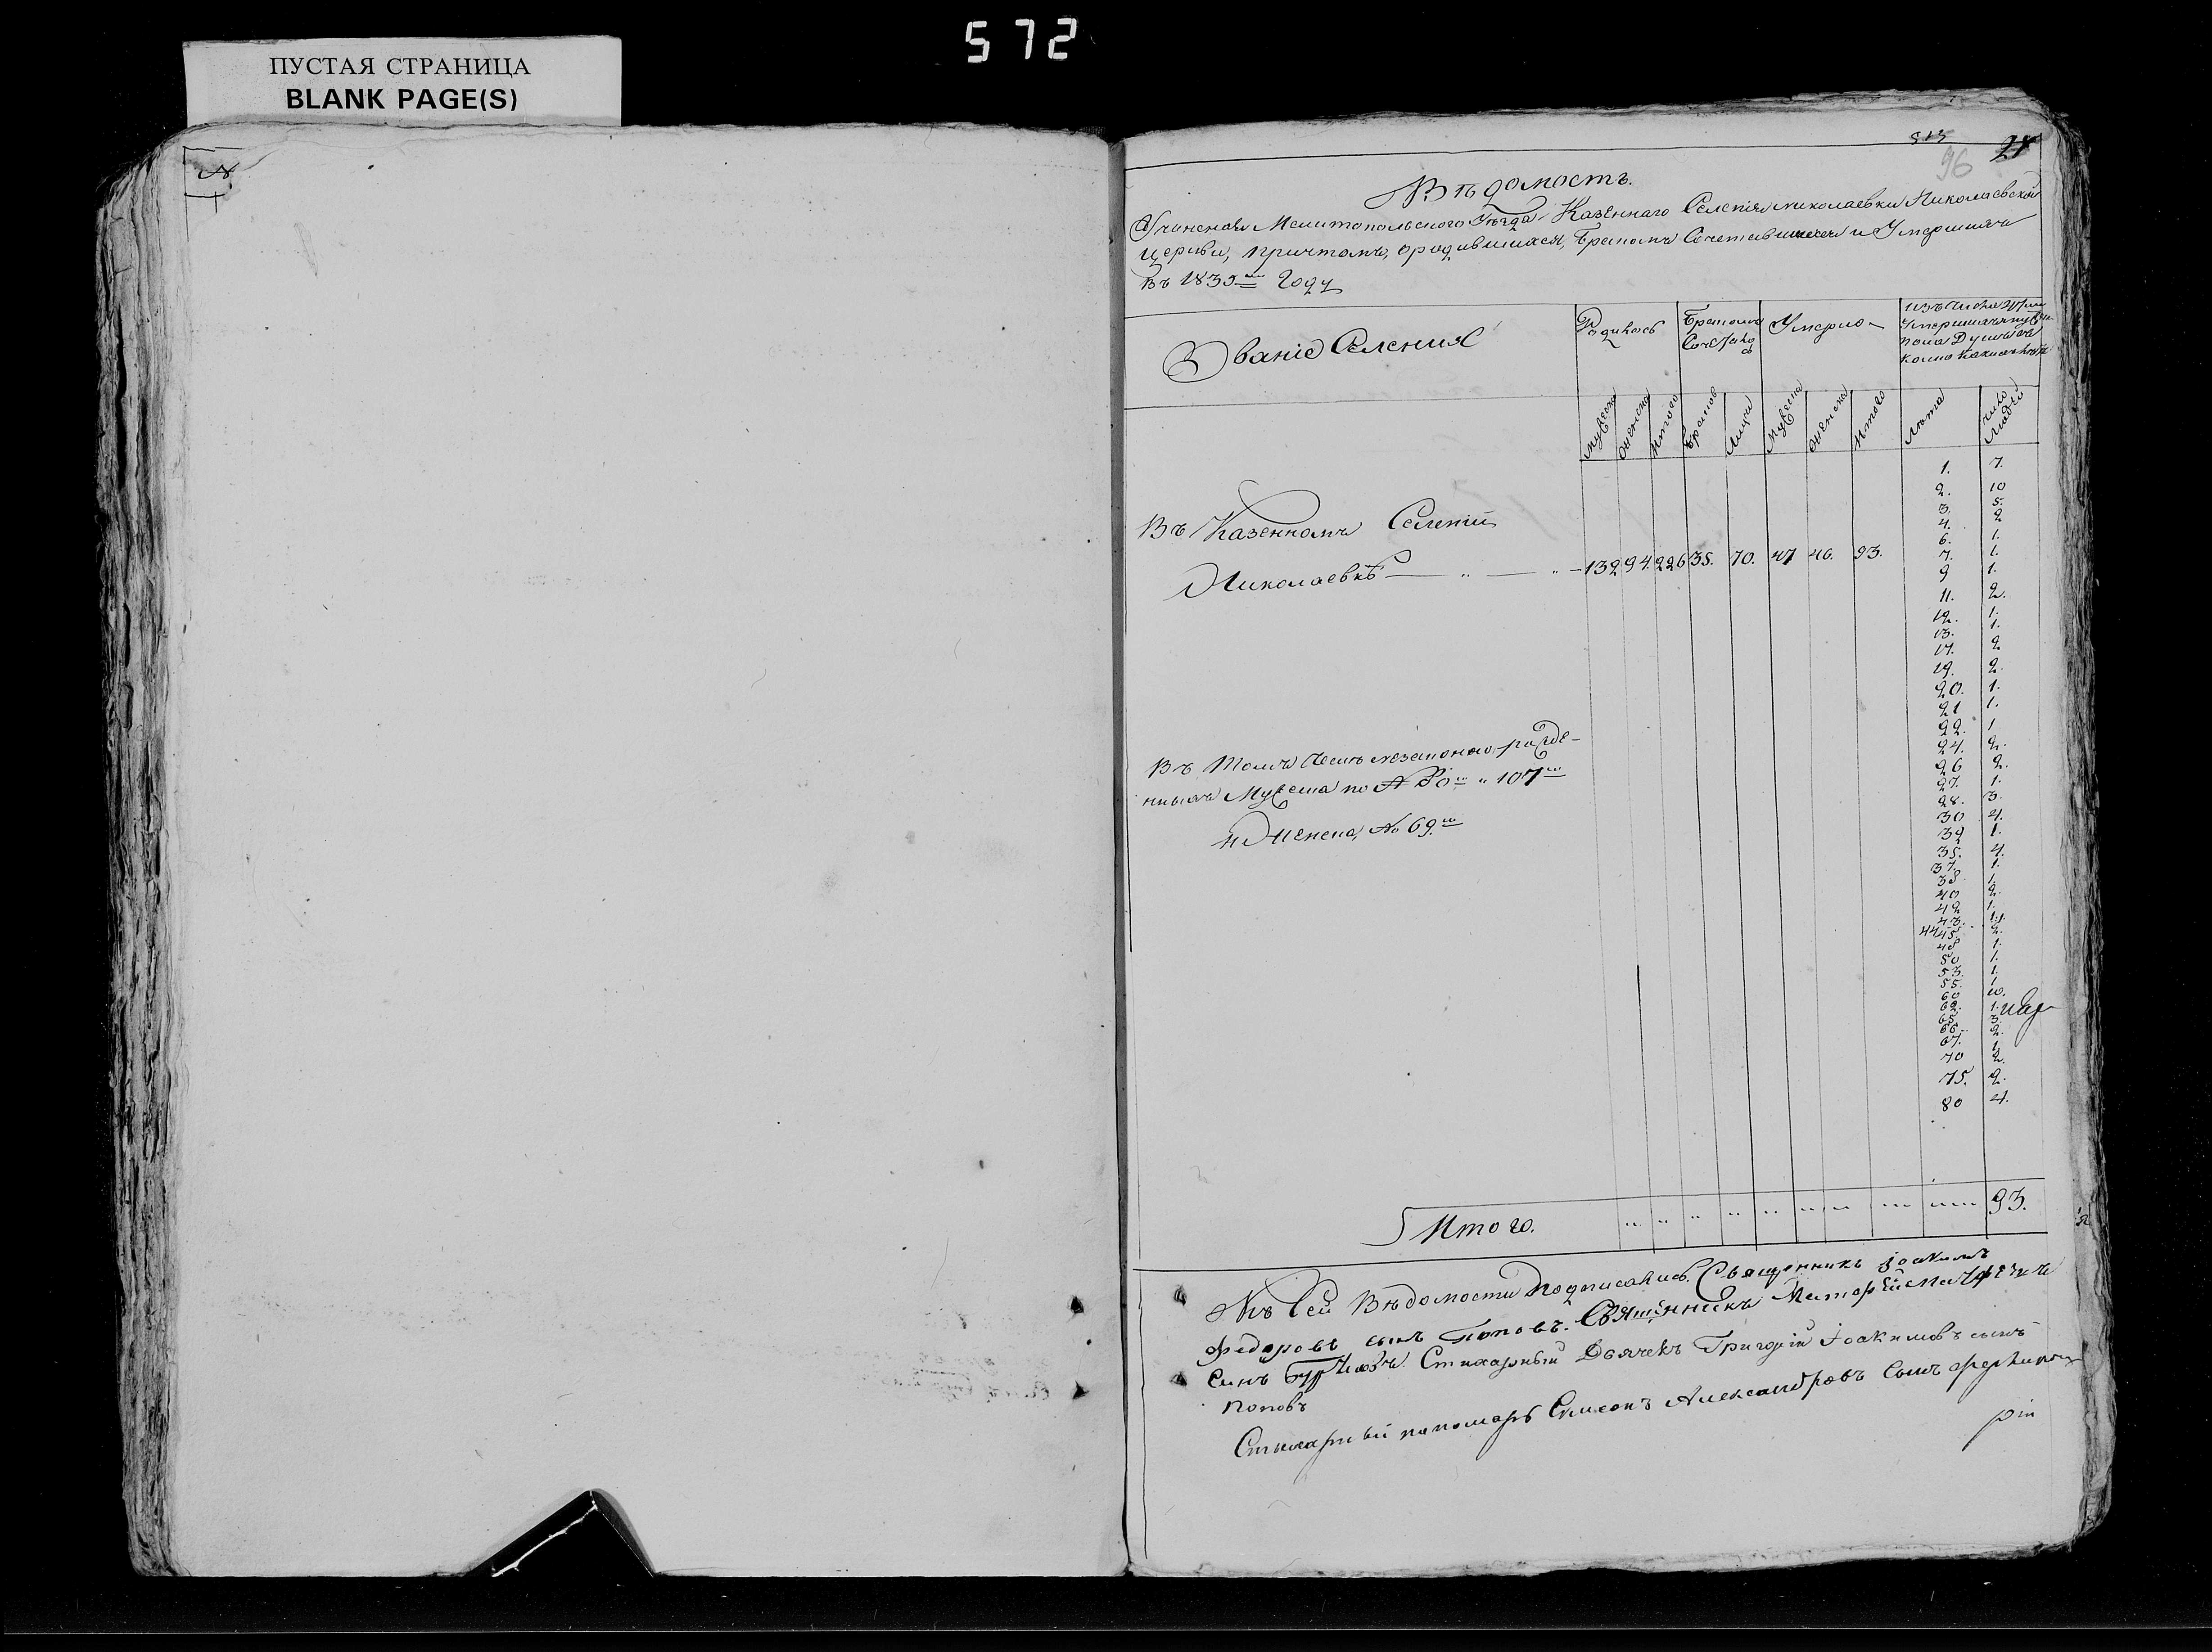 572
ПУСТАЯ СТРАНИЦА
BLANK PAGE(S)
96
Вѣдомость.
Учиненная Мелитопольского Уѣзда Казеннаго Селенія Николаевки Николаевской
церкви, причтомъ, о родившихся, бракомъ Сочетавшихся и Умершихъ
Въ 183 году
Званіе Селения
Родилось
Бракомъ
Умерло
Мужеска
Женска
Итого
Браков
Лица
Мужеска
Женска
Итого
Лѣта
число
людей
Въ Казенномъ Селеніи
Николаевкѣ 132 94. 226 35. 70. 47 46. 93.
1. 7.
2. 10
3. 5.
4. 2
6. 1.
7. 1.
9 1.
11. 2.
12. 1.
13. 1.
17. 2
19. 2.
20. 1.
21 1.
22. 1
24. 2.
26 2.
27. 1.
28. 3.
30 4.
32 1.
35. 4.
37. 1.
38 1.
40 2.
42 1.
43.
44 45. 2.
48 1.
50 1.
53. 1.
55. 1
60 10.
62. 1.
65. 3.
66. 2.
67. 1.
70 2.
75. 2.
80 4.
Въ Томъ числѣ незаконно рожде-
нныхъ Мужеска по № 107
и Женска, № 69.
Итого. 93.
Къ Сей Вѣдомости Подписались. Священникъ Іоакимъ
Федоровъ сынъ Поповъ. Священникъ
Сынъ Стихарный Дьячекъ Григорій Іоакимовъ сынъ
Поповъ
Стихарный пономарь Симеонъ Александровъ Сынъ